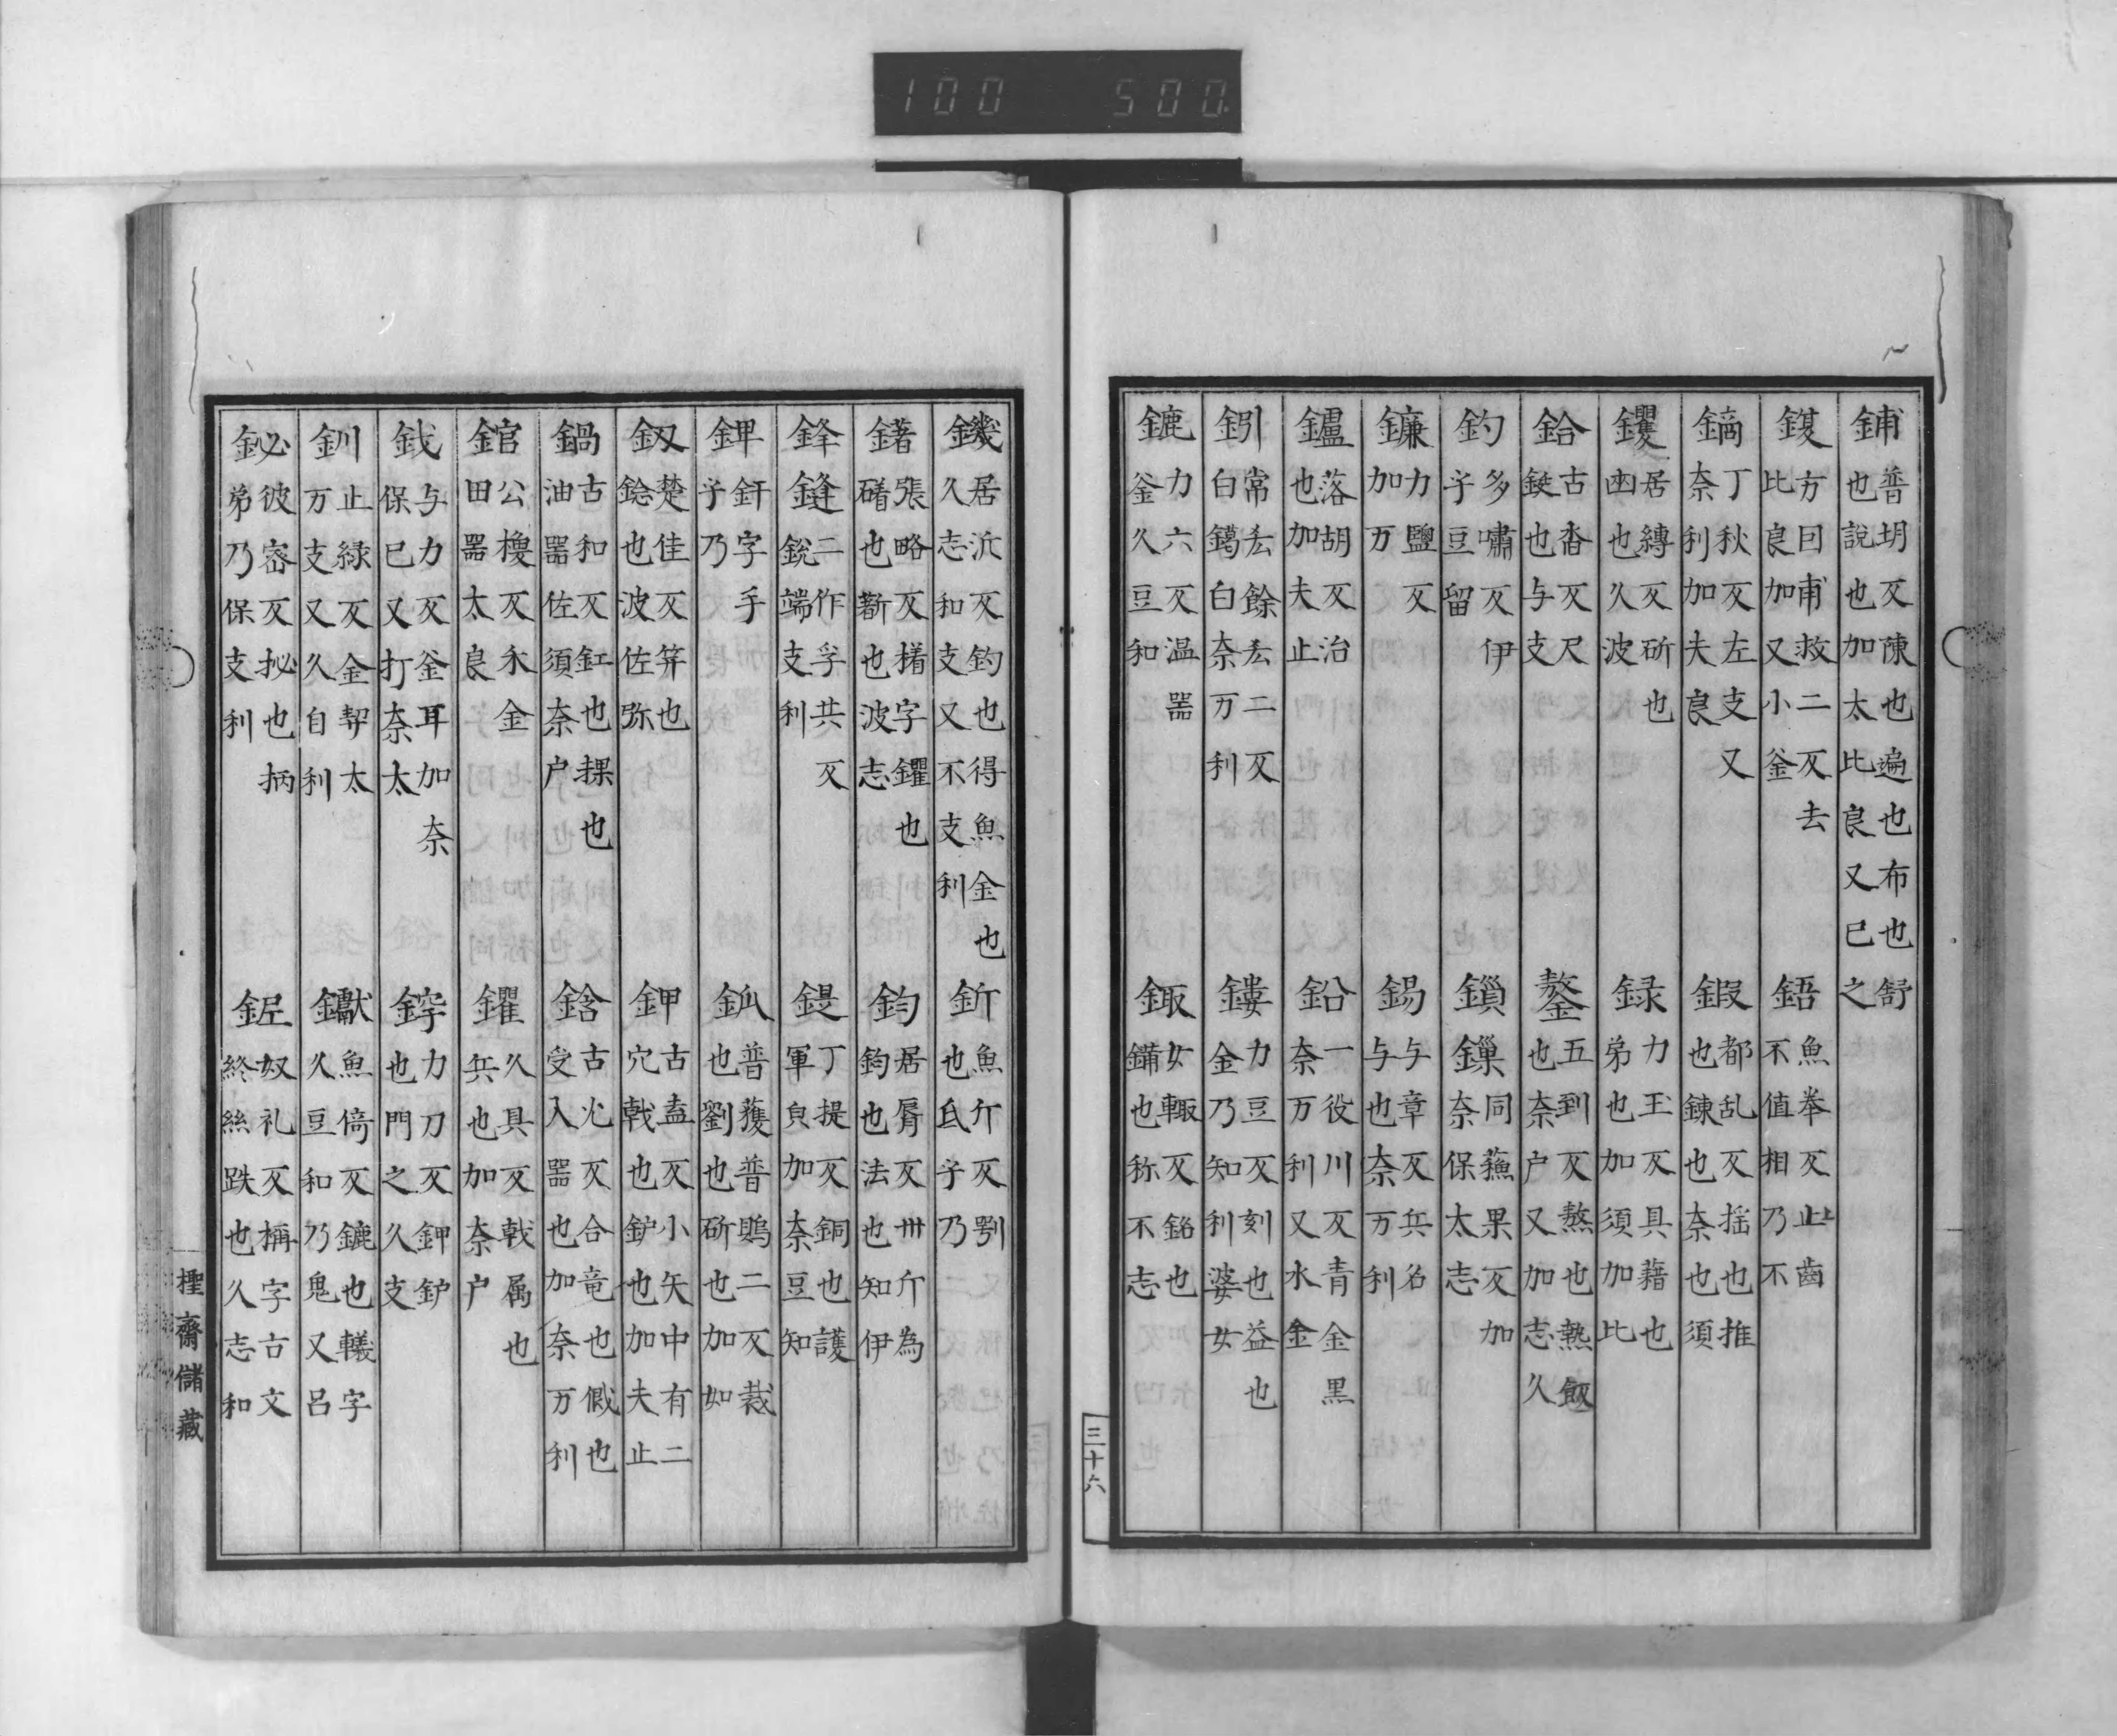 100 500
鋪 普胡反陳也遍也布也舒也說也加太比良又已之
鍑 方目甫救二反去比良加又小釜
鋙 魚拳反止齒不值相乃不
鏑 丁秋反左支又奈利加夫良
鍜 都乱反揺也推也鍊也奈也須
钁 居縛反斫也凾也久波
録 力玉反具藉也弟也加須加比
鉿 古沓反尺鋌也与支
鏊 五到反熬也熱飯也奈戸又加志久
釣 多嘯反伊孑豆留
鎻 鏁 同蘓果反加奈保太志
鐮 力鹽反加万
鍚 与章反兵名与也奈万利
鑪 落胡反冶也加夫止
鉛 一役川反青金黒奈万利又水金
鈏 常厺餘厺二反白鑞白奈万利
鏤 力豆反刻也益也金乃知利婆女
鏕 力六反温器釜久豆和
鈘 女輙反銘也鏽也称不志
三十六
鐖 居沂反釣也得魚金也久志和支又不支利
釿 魚斤反劅也氐孑乃
鐯 張略反㩿字钁也䃴也斵也波志
鈞 居脣反卅斤為鈞也法也知伊
鋒 鏠 二作孚共反鋭端支利
鍉 丁提反銅也護軍負加奈豆知
錍 釬字手孑乃
鈲 普蒦普䳇二反裁也劉也斫也加如
釵 楚佳反笄也鎗也波佐弥
鉀 古盍反小矢中有二穴戟也鈩也加夫止
鍋 古和反釭也粿也油器佐須奈戸
鋡 古火反合竜也㒇也受入器也加奈万利
錧 公㮡反木金田器太良
鑺 久具反戟属也兵也加奈戸
鉞 与力反釜耳加奈保已又打奈太
鋍 力刀反鉀鈩也門之久支
釧 止緑反金契太万支又久自利
钀 魚倚反鏕也轙字久豆和乃鬼又呂
鉍 彼宻反拟也柄弟乃保支利
鈮 奴礼反檷字古文終絲跌也久志和
㮚齋儲藏